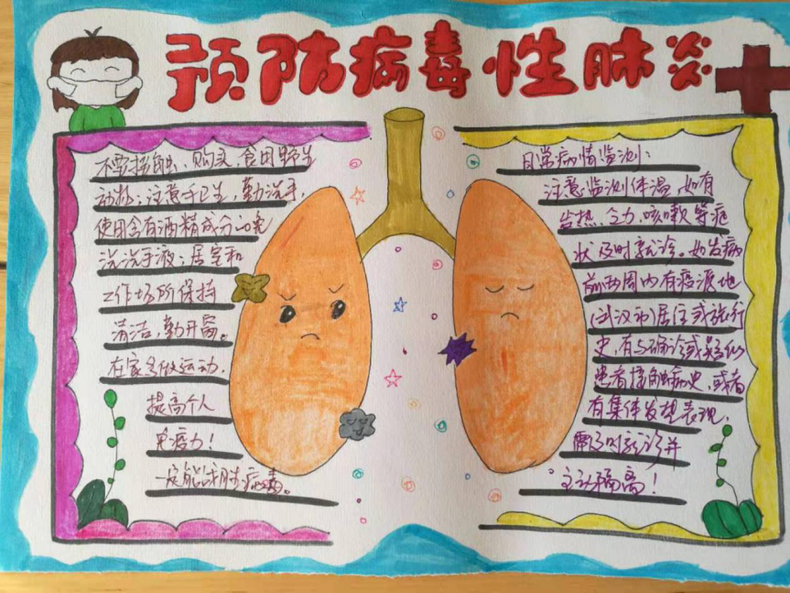 预防病毒性肺炎
不要接触、购买、食用野生
动物；注意手卫生，勤洗手，
使用含有酒精成分的免
洗洗手液；居室和
工作场所保持
清洁，勤开窗。
在家多做运动，
提高个人
免疫力！
一定能战胜病毒。
日常病情监测：
注意监测体温，如有
发热、乏力、咳嗽等症
状及时就诊。如发病
前两周内有疫源地
(武汉和)居住或旅行
史，有与确诊或疑似
患者接触病史，或者
有集体发热表现，
需及时就诊并
主动隔离！